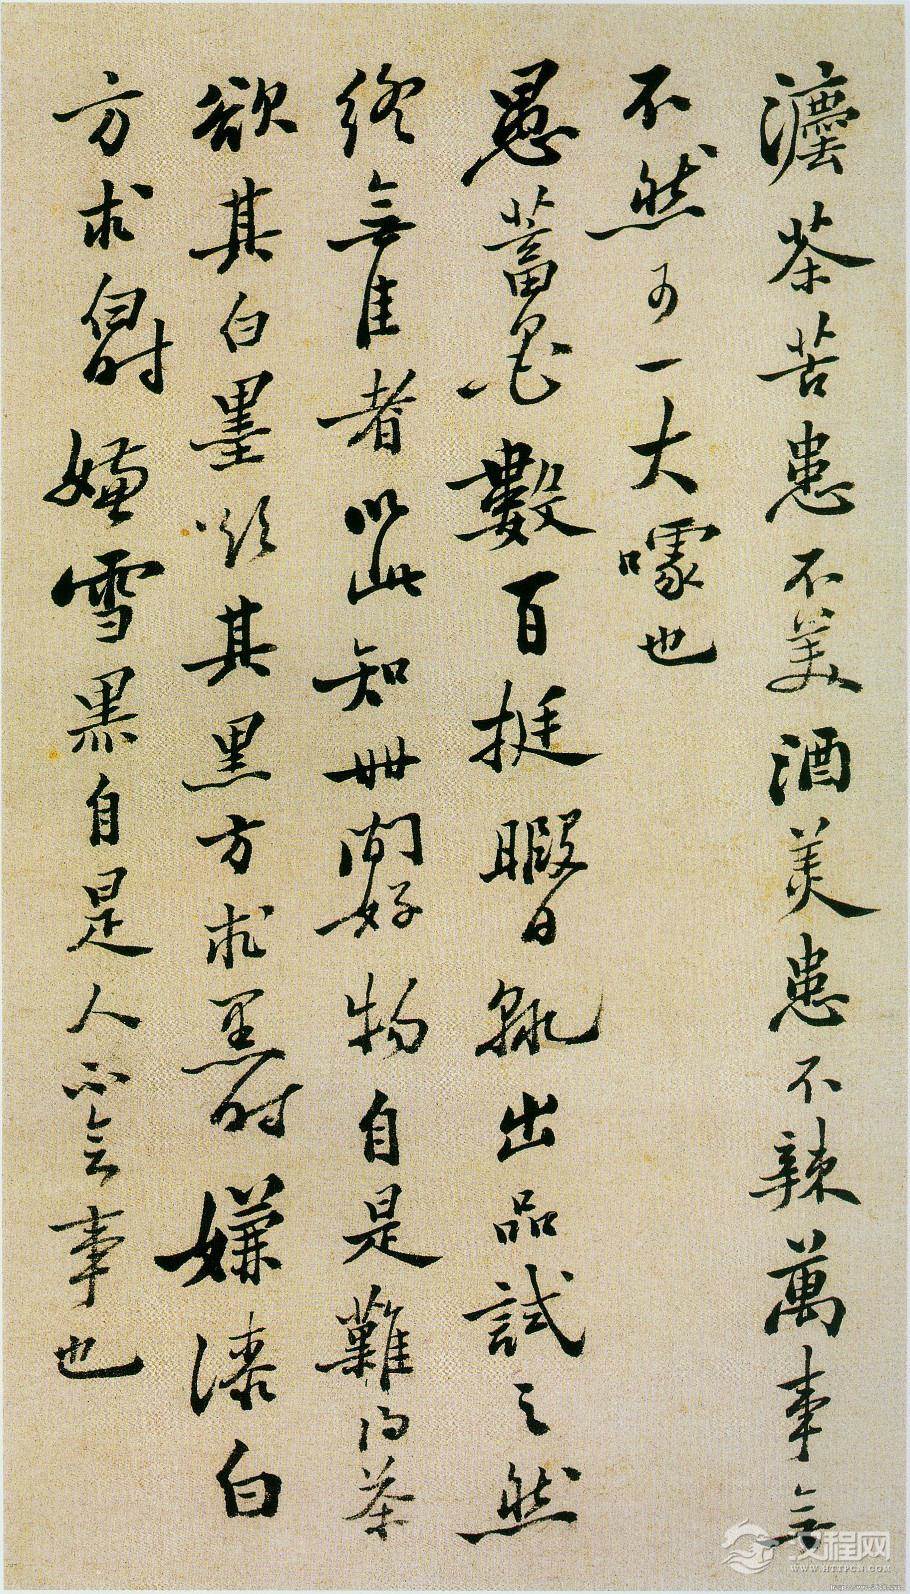 灋茶苦患不美酒美患不辣萬事無
不然可一大噱也
愚蓄墨數百挺暇日輒出品試之然
終無佳者以此知世間好物自是難得茶
欲其白墨欲其黑方求黑時嫌漆白
方求白時嫌雪黑自是人不會事也
汉程网
WWW.HTTPCN.COM